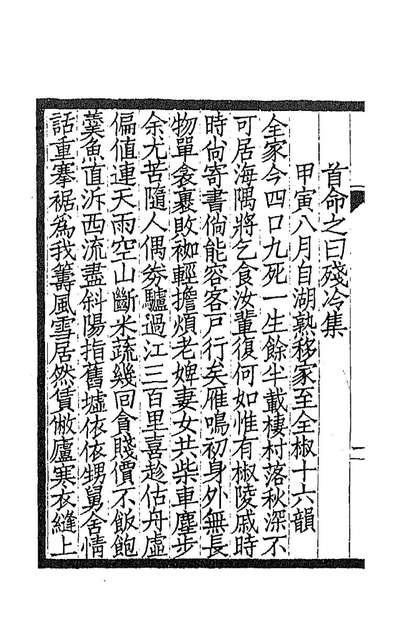 首命之曰殘冷集
甲寅八月自湖熟移家至全椒十六韻
全家今四口九死一生餘半載棲村落秋深不
可居海隅將乞食汝輩復何如惟有椒陵戚時
時尙寄書倘能容客戶行矣雁鳴初身外無長
物單衾裹敗袽輕擔煩老婢妻女共柴車塵步
余尤苦隨人偶劵驢過江三百里喜趁估舟虛
偏値連天雨空山斷米蔬幾回貪賤價不飯飽
羹魚直泝西流盡斜陽指舊墟依依甥舅舍情
話重搴裾爲我籌風雪居然賃敝廬寒衣縫上